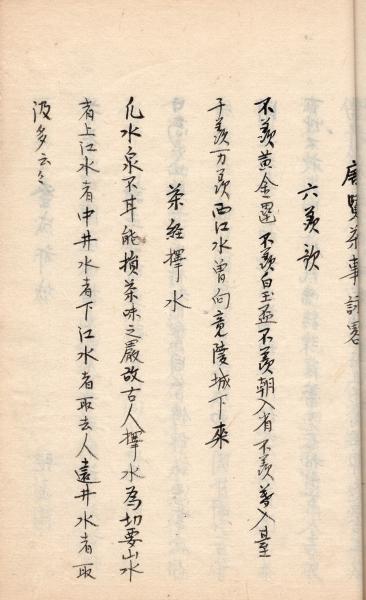 唐賢茶事詩畧
六羨歌
不羨黄金罍不羨白玉盃不羨朝入省不羨暮入臺
千羨万羨西江水曽向竟陵城下来
茶経擇水
凡水泉不耳能損茶味之嚴故古人擇水為切要山水
者上江水者中井水者下江水者取去人遠井水者取
汲多云々